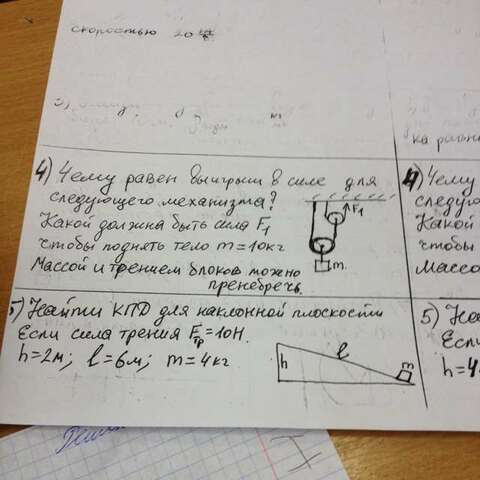 скоростью 20 км/ч
3)
ка равн
4) Чему равен выигрыш в силе для
следующего механизма?
Какой должна быть сила F₁
чтобы поднять тело m=10кг
Массой и трением блоков можно
пренебречь.
F₁
m
4) Чему
следую
Какой
чтобы
Массо
5) Найти КПД для наклонной плоскости
Если сила трения Fтр=10Н.
h=2м; l=6м; m=4кг
h
l
m
5) На
Если
h=4